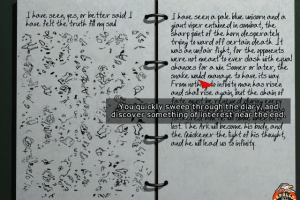 I have seen, yes, or better said I
have felt the truth fill my soul
I have seen a pale blue unicorn and a
giant viper entwined in combat, the
sharp point of the horn desperately
trying to ward off certain death. It
was an unfair fight, for the opponents
were not meant to ever clash with equal
chances for a win. Sooner or later, the
snake would manage to have its way.
From nothing to infinity man has risen
and shall rise again, but the chain of
You quickly sweep through the diary, and
discover something of interest near the end.
lost. The Ark will become his body, and
the Quickener the light of his thought,
and he will lead us to infinity.